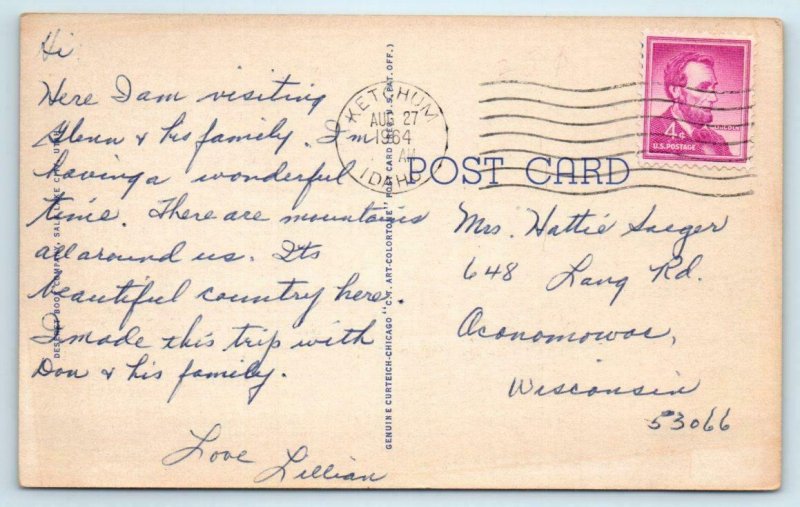 Hi
Here I am visiting
Glenn & his family. I'm
having a wonderful
time. There are mountains
all around us. Its
beautiful country here.
I made this trip with
Don & his family.
Love Lillian
KETCHUM
AUG 27
1964
AM
IDAHO
POST CARD
4¢
U.S. POSTAGE
Mrs. Hattie Saeger
648 Lang Rd.
Oconomowoc,
Wisconsin
53066
GENUINE CURTEICH-CHICAGO "C.T. ART-COLORTONE" POST CARD (REG. U.S. PAT. OFF.)
DESERET BOOK COMPANY, SALT LAKE CITY, UTAH